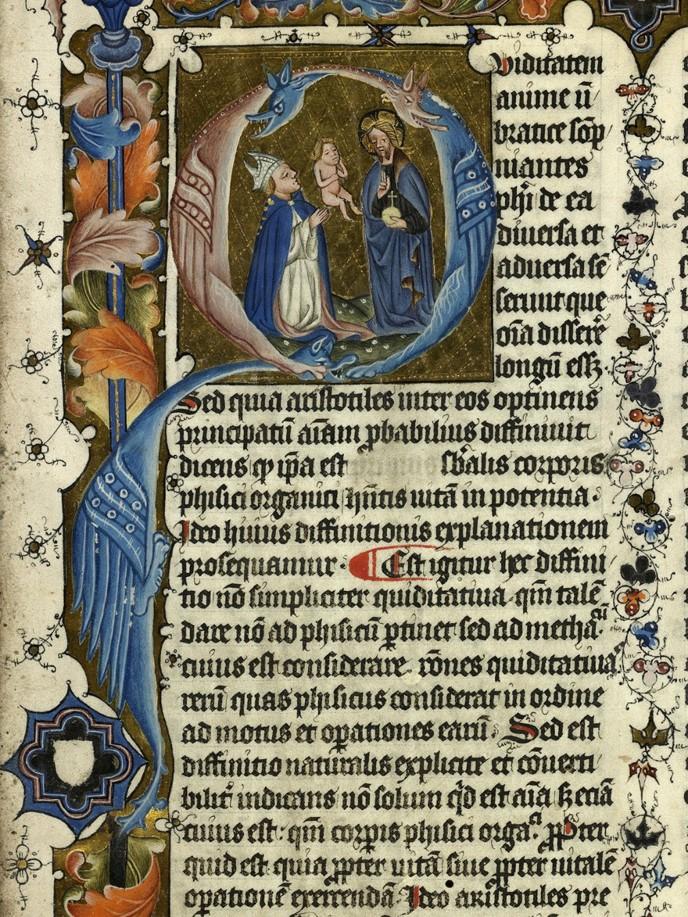 Quiditatem
anime ū
bratice sōp
niantes
phi de ea
diuersa et
aduersa sē
serunt que
oīa dissere
longū eēt.
Sed quia aristotiles inter eos optinens
principatū aīam ꝓbabilius diffiniuit
dicens ꝙ ip̄a est sb̄alis corporis
phisici organici hn̄tis uitā in potentia.
Ideo huius diffinitionis explanationem
prosequamur. Est igitur hec diffini
tio nō simpliciter quiditatiua. qm̄ talē
dare nō ad phisicū ꝑtinet sed ad metha.
cuius est considerare rōnes quiditatiua
rerū quas phisicus considerat in ordine
ad motus et oꝑationes earū. Sed est
diffinitio naturalis explicite et cōuerti
bilit̄ indicans nō solum qd̄ est aīa sꝫ eciā
cuius est. qm̄ corꝑis phisici orga. ꝓpter
quid est quia ꝓpter uitā siue ꝓpter uitalē
oꝑationē exercendā. Ideo aristotiles pre